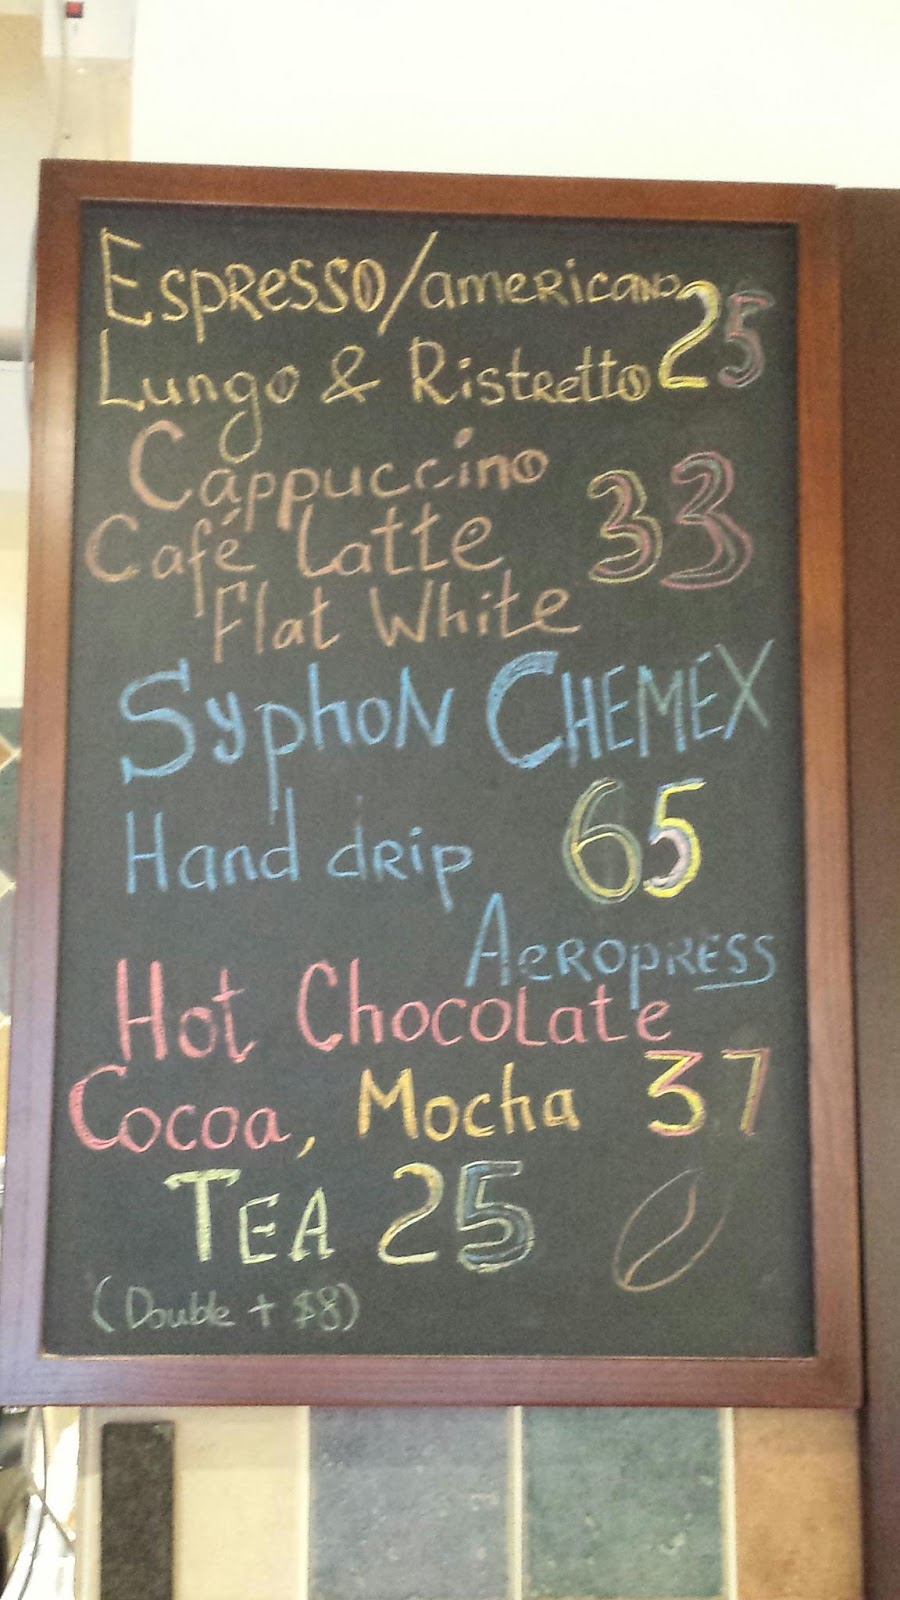 Espresso/americano
Lungo & Ristretto 25
Cappuccino
Café Latte 33
Flat White
Syphon CHEMEX
Hand drip 65
Aeropress
Hot Chocolate
Cocoa, Mocha 37
TEA 25
(Double + $8)